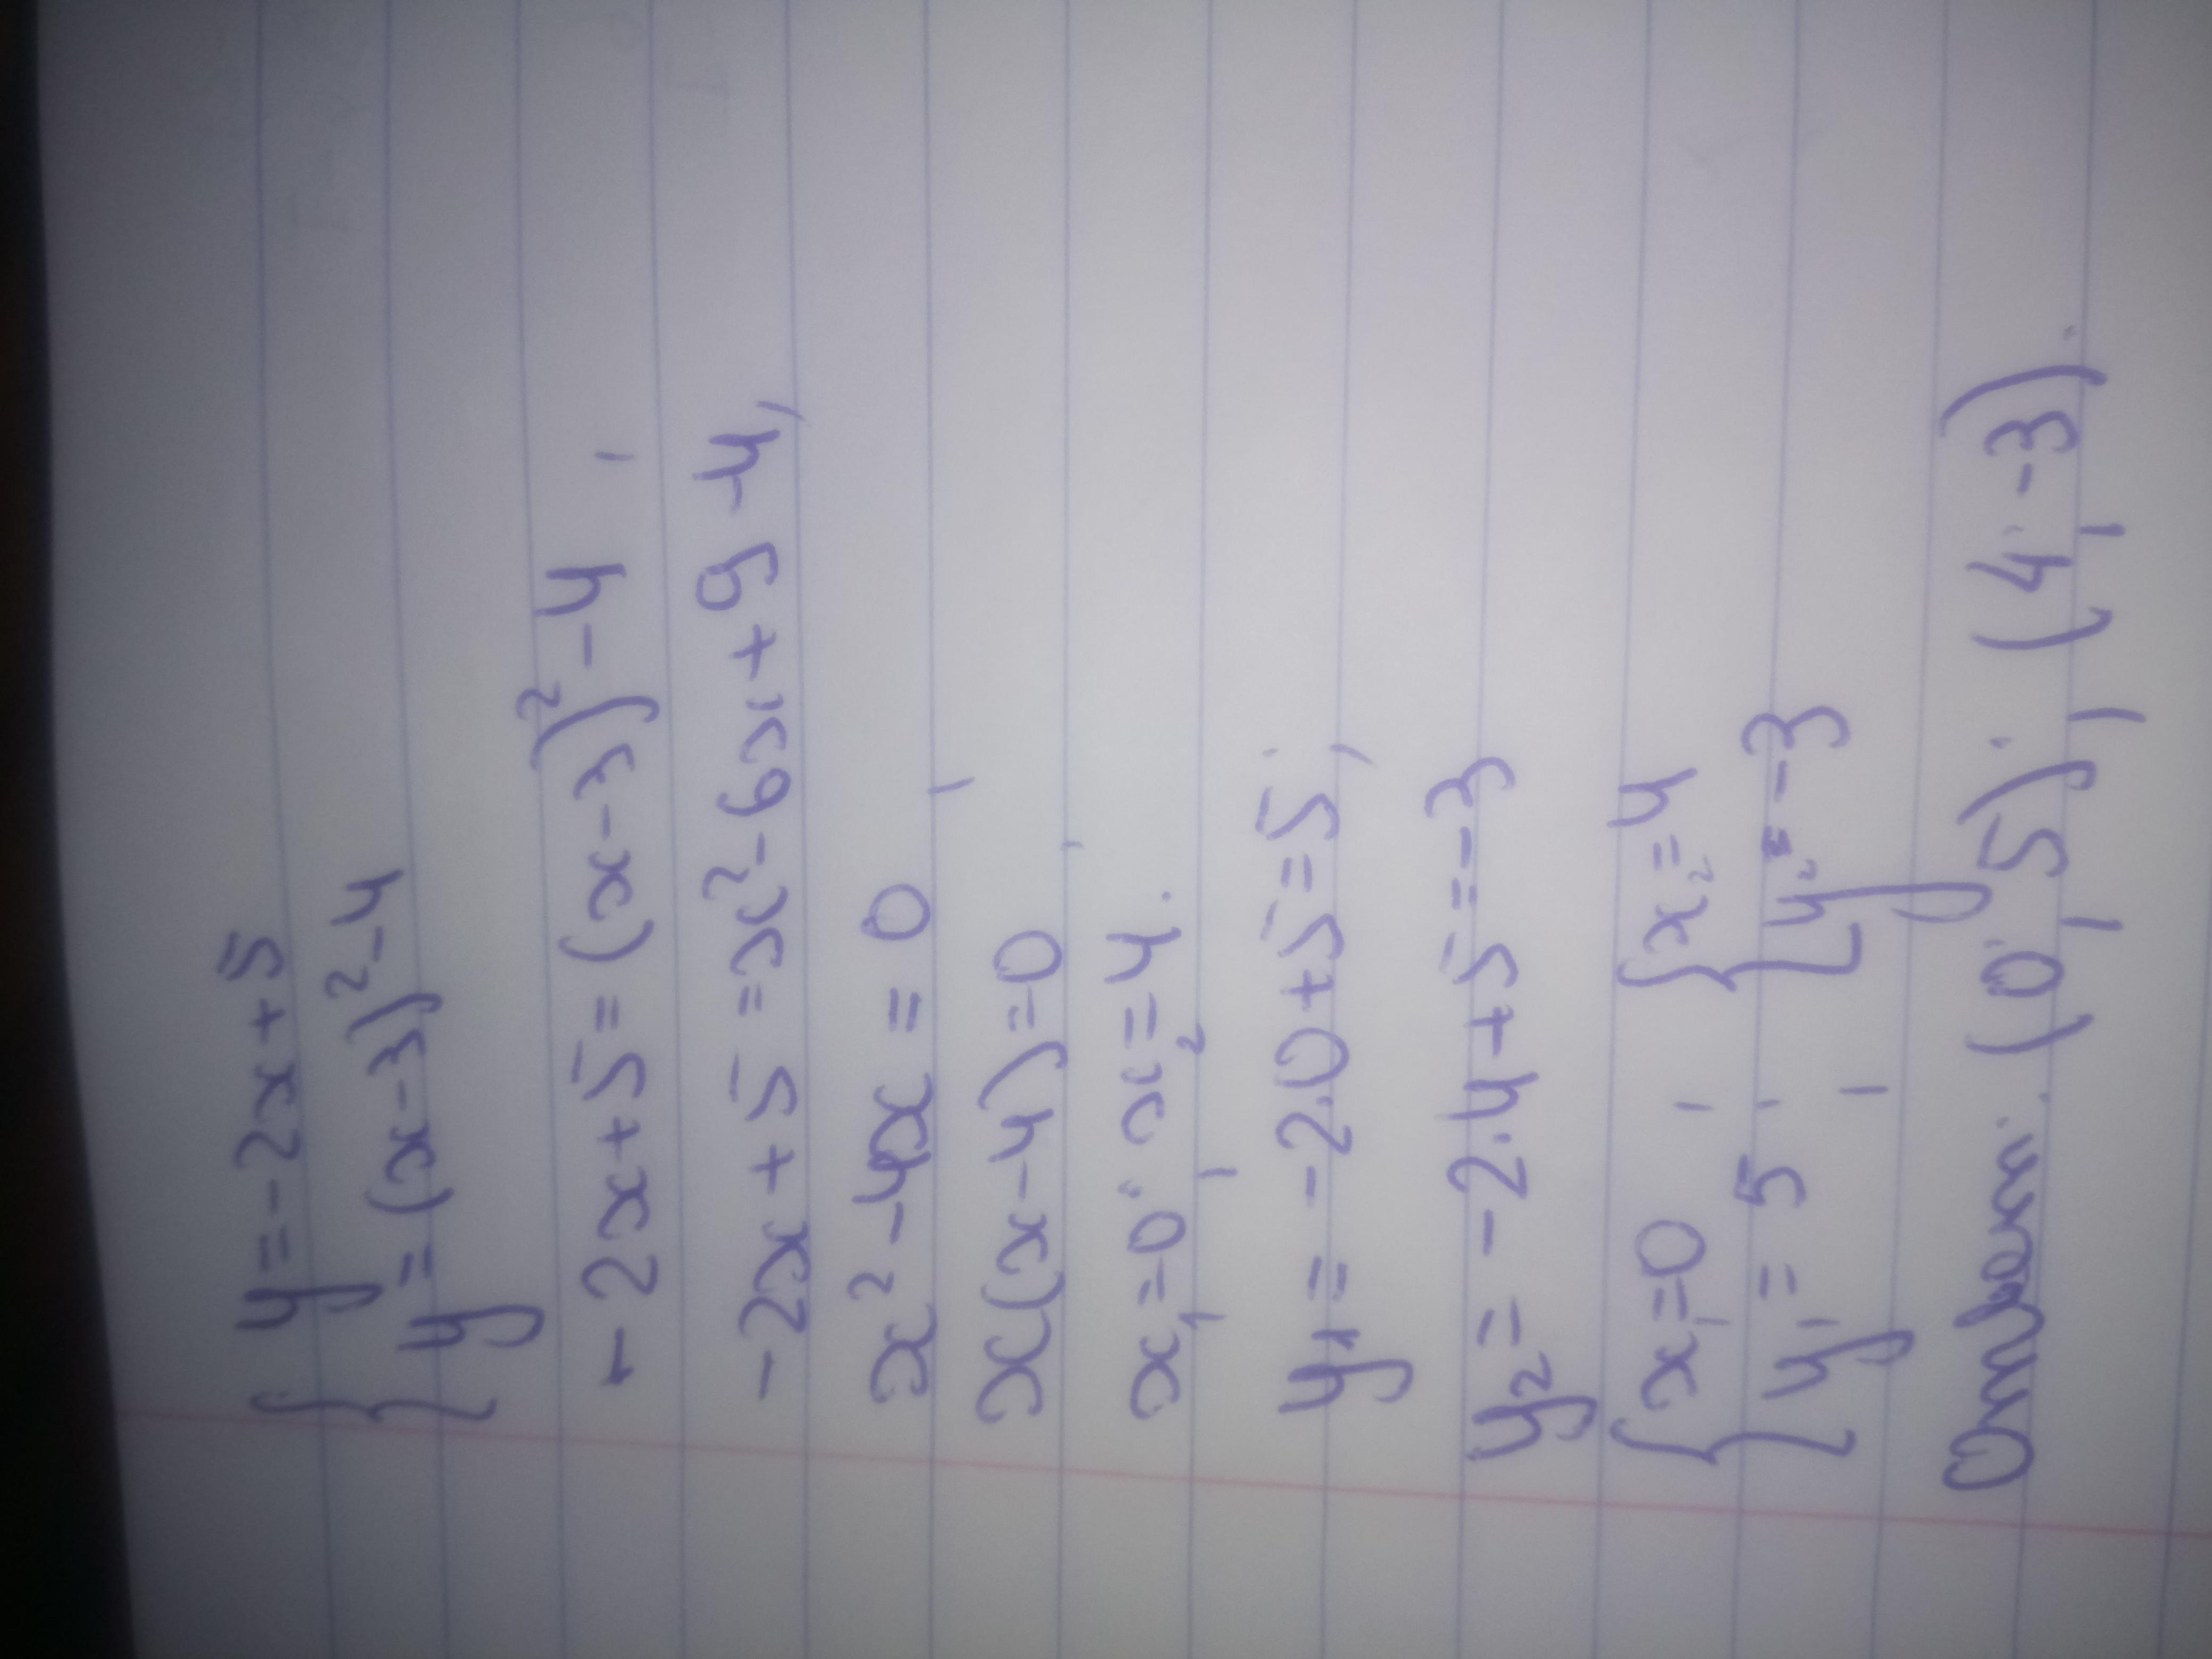 { y = -2x + 5
y = (x-3)² - 4
- 2x + 5 = (x-3)² - 4;
-2x + 5 = x² - 6x + 9 - 4;
x² - 4x = 0;
x(x-4) = 0;
x₁ = 0; x₂ = 4.
y₁ = -2·0 + 5 = 5;
y₂ = -2·4 + 5 = -3
{ x₁ = 0; { x₂ = 4
y₁ = 5; y₂ = -3
Ответ: (0; 5); (4; -3).